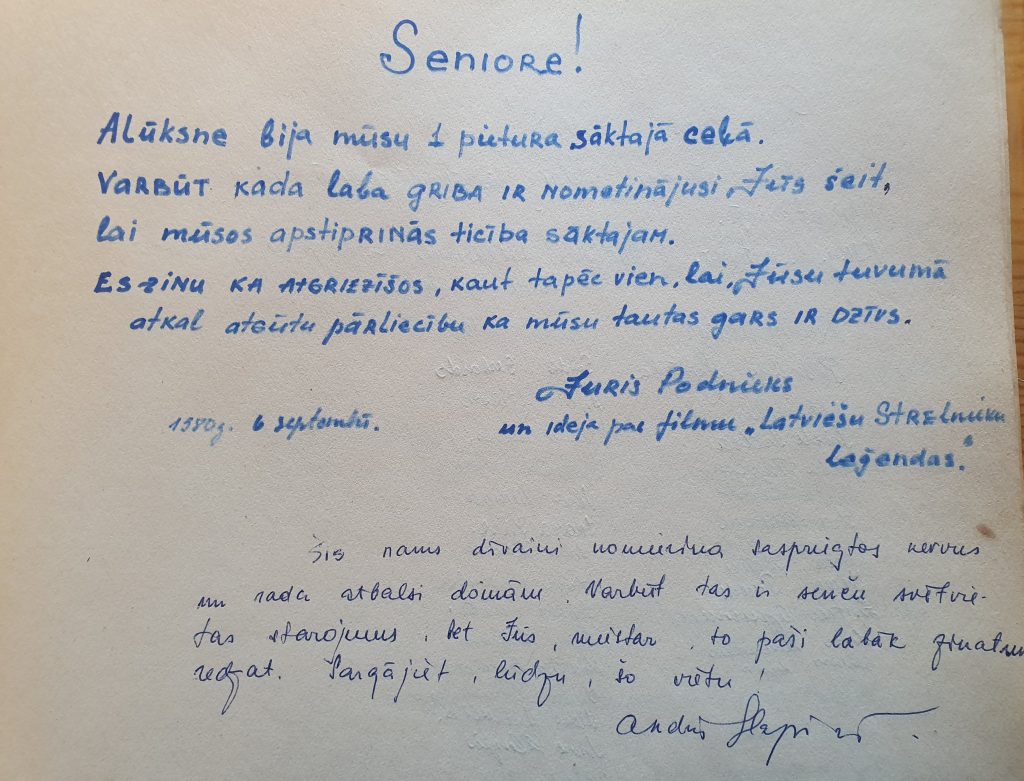 Seniore!
Alūksne bija mūsu 1 pietura sāktajā ceļā.
Varbūt kāda laba griba ir nometinājusi Jūs šeit,
lai mūsos apstiprinās ticība sāktajam.
Es zinu ka atgriezīšos, kaut tapēc vien, lai Jūsu tuvumā
atkal atgūtu pārliecību ka mūsu tautas gars ir dzīvs.
Juris Podnieks
1980g. 6 septembrī.
un ideja par filmu „Latviešu Strelnieku
Leģendas."
Šis nams dīvaini nomierina saspriegtos nervus
un rada atbalsi domām. Varbūt tas ir senču svētvie-
tas starojums, bet Jūs, meistar, to paši labāk zinat un
redzat. Sargājiet, lūdzu, šo vietu!
Andris Slapiņš.